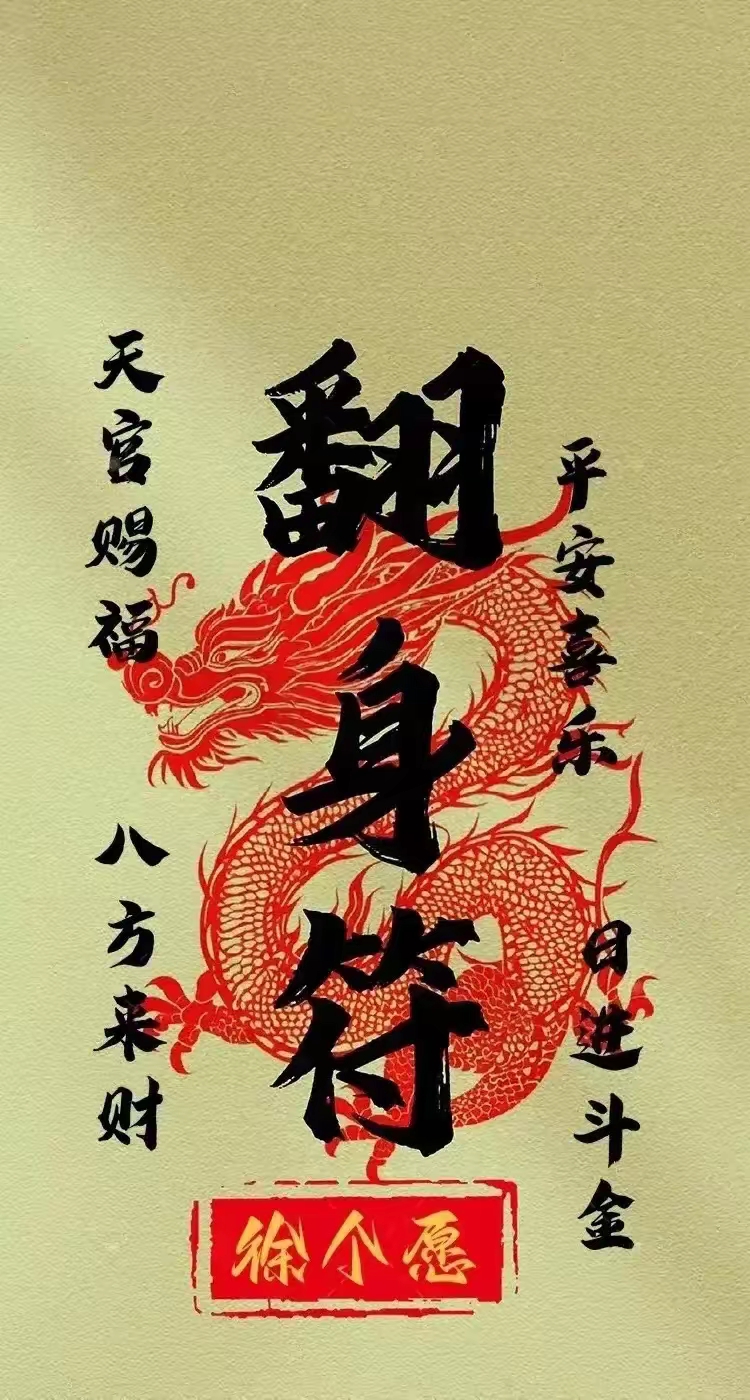 翻身符
天官赐福
八方来财
平安喜乐
日进斗金
徐个愿